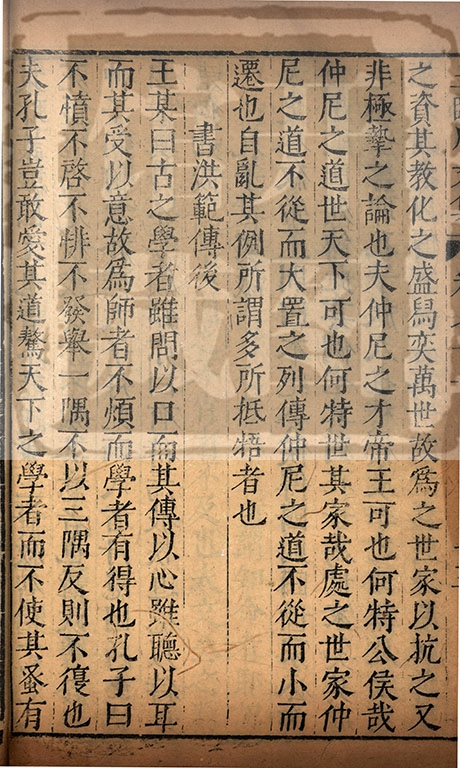 之資其教化之盛舄奕萬世故爲之世家以抗之又
非極摯之論也夫仲尼之才帝王可也何特公侯哉
仲尼之道世天下可也何特世其家哉處之世家仲
尼之道不從而大置之列傳仲尼之道不從而小而
遷也自亂其例所謂多所抵牾者也
書洪範傳後
王某曰古之學者雖問以口而其傳以心雖聽以耳
而其受以意故爲師者不煩而學者有得也孔子曰
不憤不啓不悱不發舉一隅不以三隅反則不復也
夫孔子豈敢愛其道驁天下之學者而不使其蚤有